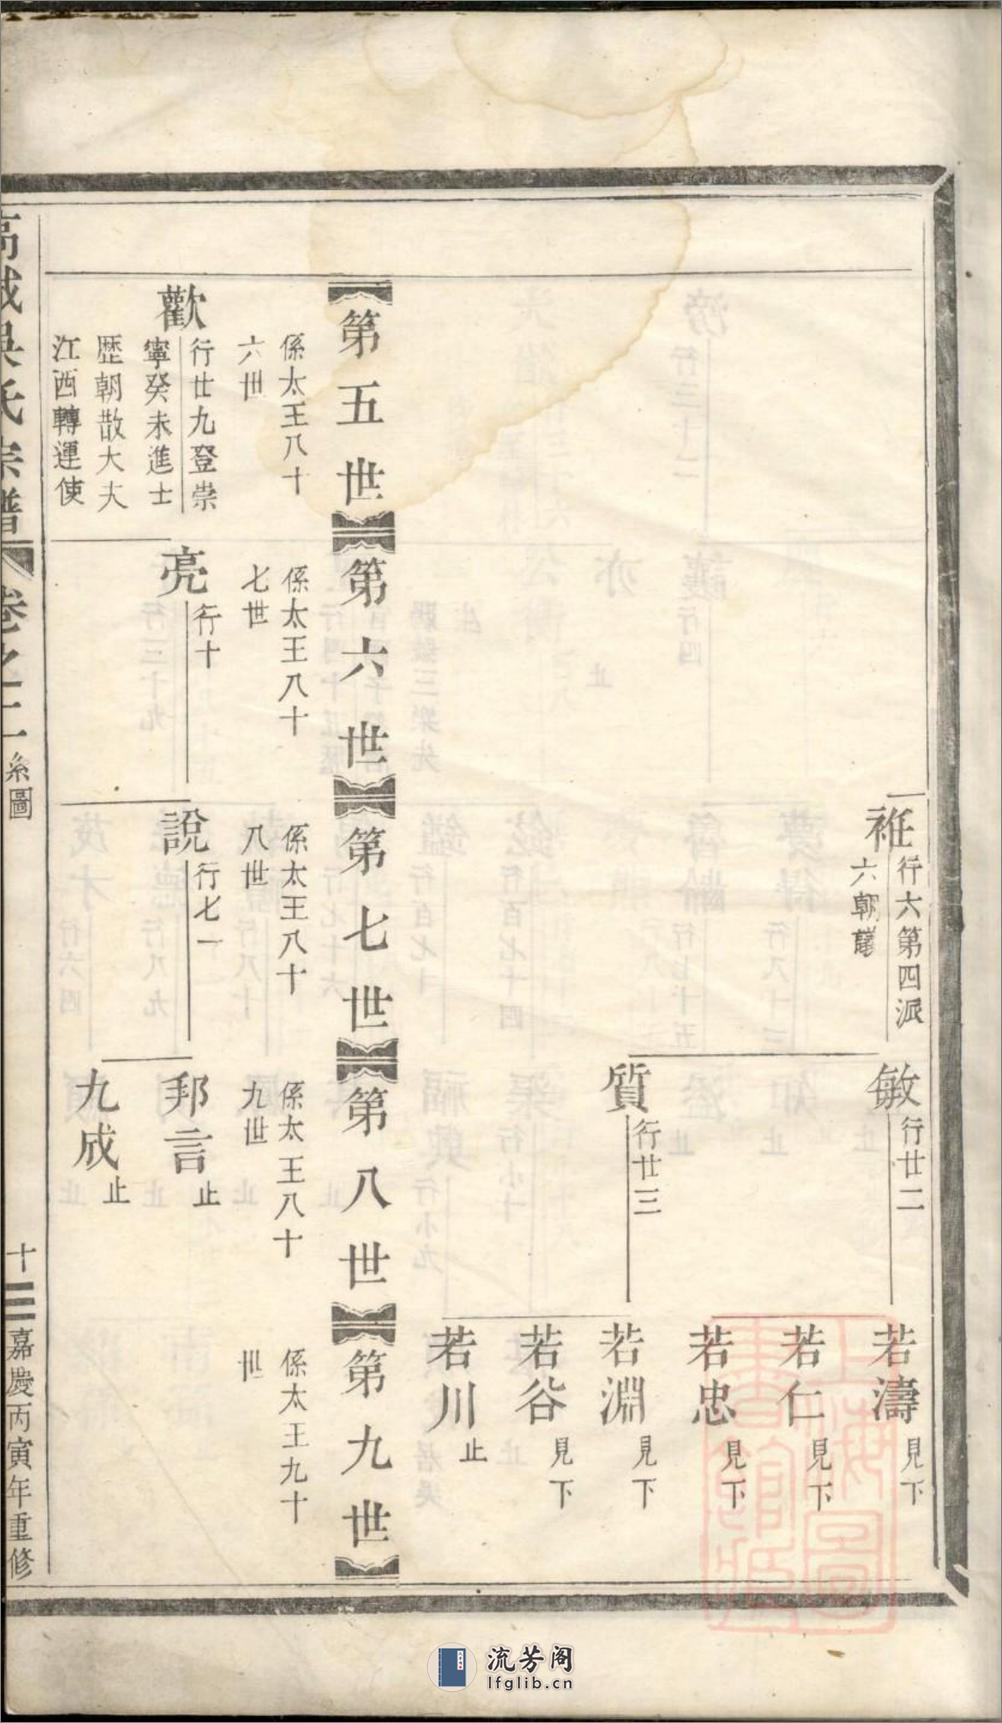 袵
行六第四派
六朝議
敏
行廿二
若濤
見下
若仁
見下
若忠
見下
質
行廿三
若淵
見下
若谷
見下
若川
止
第五世
係太王八十
六世
第六世
係太王八十
七世
第七世
係太王八十
八世
第八世
係太王八十
九世
第九世
係太王九十
世
歡
行廿九登崇
寧癸未進士
歷朝散大夫
江西轉運使
亮
行十
說
行七一
邦言
止
九成
止
吳氏宗譜
卷之二
系圖
十
嘉慶丙寅年重修
上海圖書館藏
流芳阁
lfglib.cn